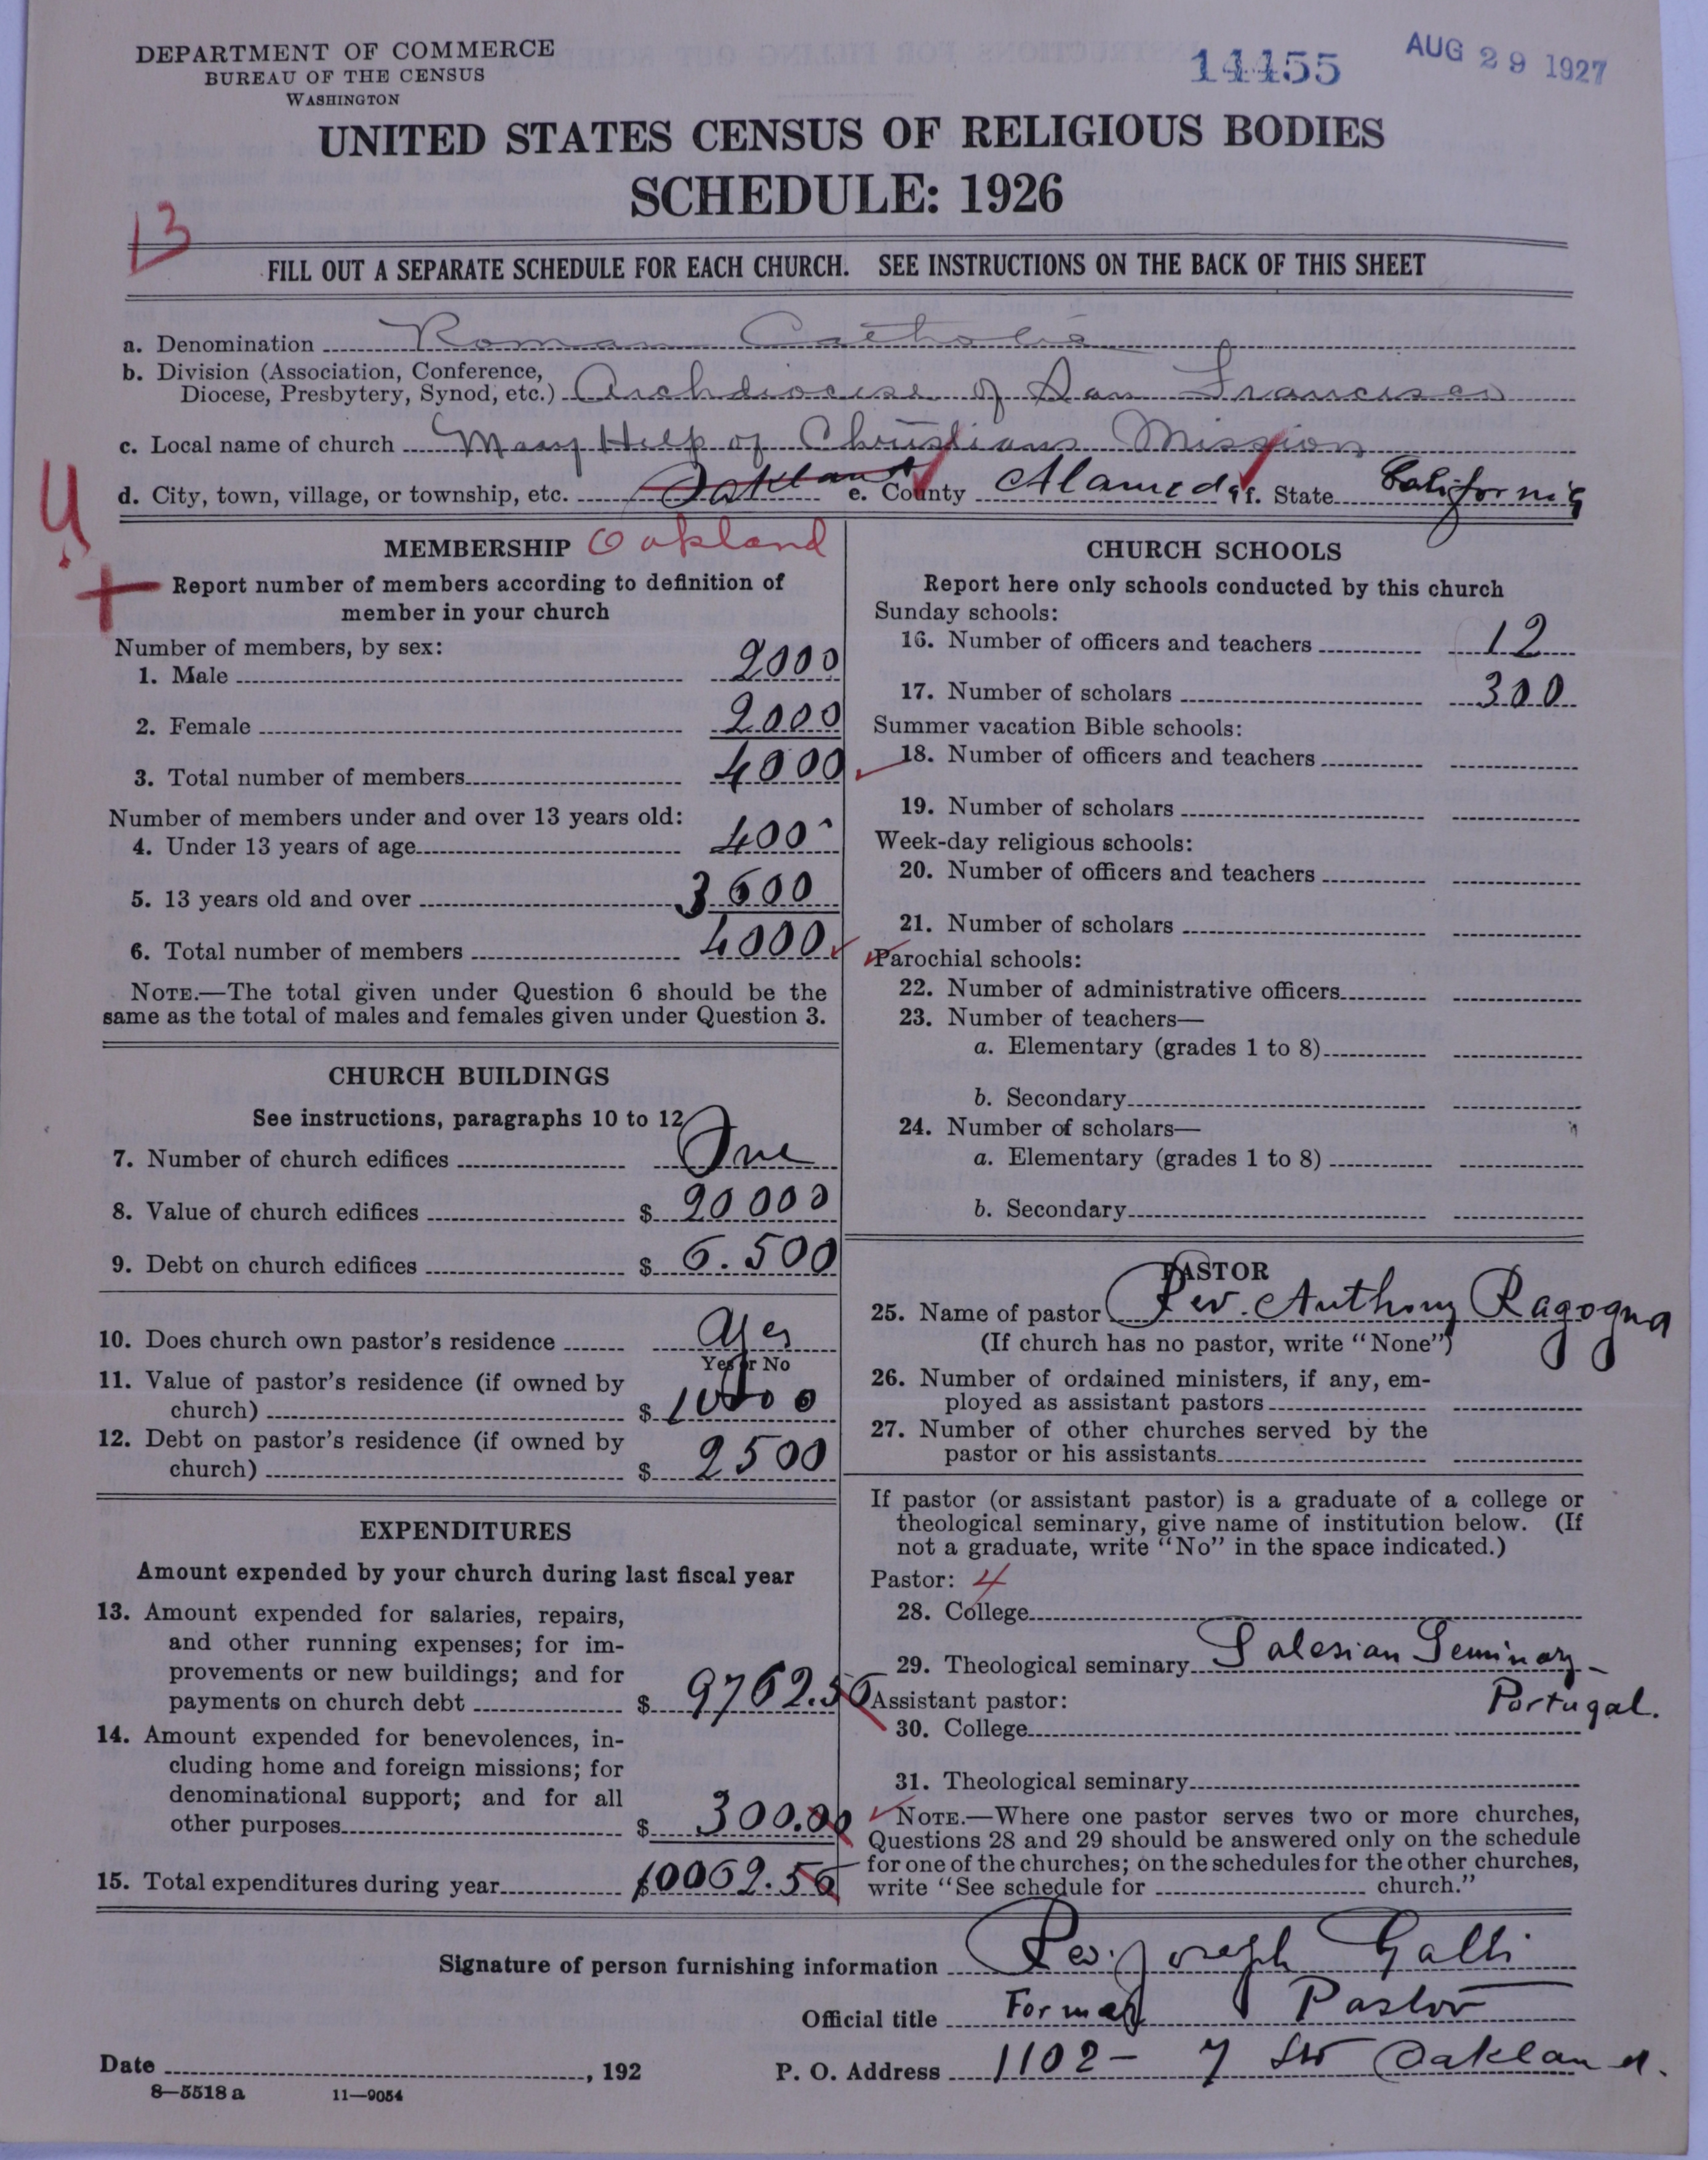 DEPARTMENT OF COMMERCE
BUREAU OF THE CENSUS
WASHINGTON
14455
AUG 29 1927
UNITED STATES CENSUS OF RELIGIOUS BODIES
SCHEDULE: 1926
13
FILL OUT A SEPARATE SCHEDULE FOR EACH CHURCH. SEE INSTRUCTIONS ON THE BACK OF THIS SHEET
a. Denomination Roman Catholic
b. Division (Association, Conference,
Diocese, Presbytery, Synod, etc.) Archdiocese of San Francisco
c. Local name of church Mary Help of Christians Mission
d. City, town, village, or township, etc. Oakland e. County Alameda f. State California
U
MEMBERSHIP Oakland
Report number of members according to definition of
member in your church
Number of members, by sex:
1. Male 2000
2. Female 2000
3. Total number of members 4000
Number of members under and over 13 years old:
4. Under 13 years of age 400
5. 13 years old and over 3600
6. Total number of members 4000
NOTE.—The total given under Question 6 should be the
same as the total of males and females given under Question 3.
CHURCH BUILDINGS
See instructions, paragraphs 10 to 12
7. Number of church edifices One
8. Value of church edifices $ 20000
9. Debt on church edifices $ 6.500
10. Does church own pastor's residence Yes
Yes or No
11. Value of pastor's residence (if owned by
church) $ 10000
12. Debt on pastor's residence (if owned by
church) $ 2500
EXPENDITURES
Amount expended by your church during last fiscal year
13. Amount expended for salaries, repairs,
and other running expenses; for im-
provements or new buildings; and for
payments on church debt $ 9762.56
14. Amount expended for benevolences, in-
cluding home and foreign missions; for
denominational support; and for all
other purposes $ 300.00
15. Total expenditures during year $10062.56
CHURCH SCHOOLS
Report here only schools conducted by this church
Sunday schools:
16. Number of officers and teachers 12
17. Number of scholars 300
Summer vacation Bible schools:
18. Number of officers and teachers
19. Number of scholars
Week-day religious schools:
20. Number of officers and teachers
21. Number of scholars
Parochial schools:
22. Number of administrative officers
23. Number of teachers—
a. Elementary (grades 1 to 8)
b. Secondary
24. Number of scholars—
a. Elementary (grades 1 to 8)
b. Secondary
PASTOR
25. Name of pastor Rev. Anthony Ragogna
(If church has no pastor, write "None")
26. Number of ordained ministers, if any, em-
ployed as assistant pastors
27. Number of other churches served by the
pastor or his assistants
If pastor (or assistant pastor) is a graduate of a college or
theological seminary, give name of institution below. (If
not a graduate, write "No" in the space indicated.)
Pastor: 4
28. College
29. Theological seminary Salesian Seminary -
Portugal.
Assistant pastor:
30. College
31. Theological seminary
NOTE.—Where one pastor serves two or more churches,
Questions 28 and 29 should be answered only on the schedule
for one of the churches; on the schedules for the other churches,
write "See schedule for church."
Signature of person furnishing information Rev. Joseph Galli
Official title Former Pastor
Date , 192
P. O. Address 1102 - 7 St Oakland.
8—5518 a 11—9054